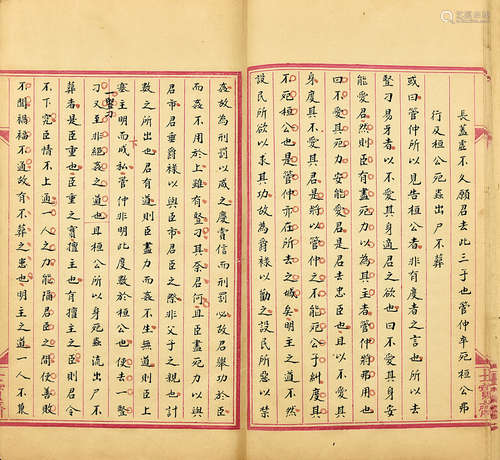 長蓋虛不久願君去此三子也管仲卒死桓公弗
行及桓公死蟲出尸不葬
或曰管仲所以見告桓公者非有度者之言也所以去
豎刁易牙者以不愛其身適君之欲也曰不愛其身安
能愛君然則臣有盡死力以為其主者管仲將弗用也
曰不愛其死力安能愛君是君去忠臣也且以不愛其
身度其不愛其君是將以管仲之不能死公子糾度其
不死桓公也是管仲亦在所去之域矣明主之道不然
設民所欲以求其功故為爵祿以勸之設民所惡以禁
姦故為刑罰以威之慶賞信而刑罰必故君舉功於臣
而姦不用於上雖有豎刁其奈君何且臣盡死力以與
君市君垂爵祿以與臣市君臣之際非父子之親也計
數之所出也君有道則臣盡力而姦不生無道則臣上
塞主明而下成私管仲非明此度數於桓公也使去一豎
刁一豎又至非絕姦之道也且桓公所以身死蟲流出尸不
葬者是臣重也臣重之實擅主也有擅主之臣則君令
不下究臣情不上通一人之力能隔君臣之間使善敗
不聞禍福不通故有不葬之患也明主之道一人不兼